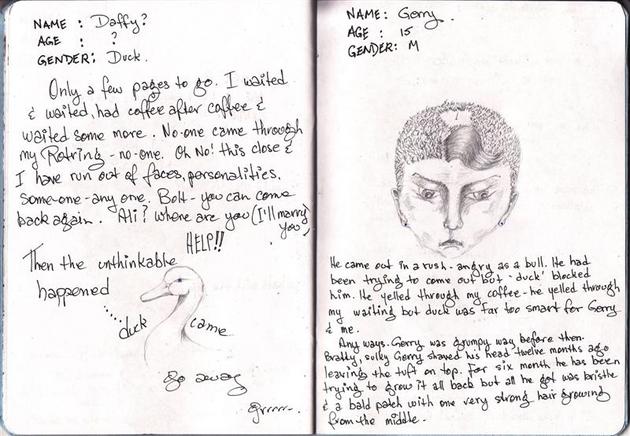 NAME : Daffy?
AGE : ?
GENDER: Duck.
Only a few pages to go. I waited
& waited, had coffee after coffee &
waited some more. No-one came through
my Rotring - no-one. Oh No! this close &
I have run out of faces, personalities,
some-one - any one. Bolt - you can come
back again. Ali? Where are you (I'll marry
you)
HELP!!
Then the unthinkable
happened
......duck came
go away
grrrrr-.
NAME: Gerry.
AGE : 15
GENDER: M
He came out in a rush - angry as a bull. He had
been trying to come out but 'duck' blocked
him. He yelled through my coffee - he yelled through
my waiting but duck was far too smart for Gerry
& me.
Any ways. Gerry was grumpy way before then.
Bratty, sulky Gerry shaved his head twelve months ago
leaving the tuft on top. For six month he has been
trying to grow it all back but all he got was bristle
& a bald patch with one very strong hair growing
from the middle.